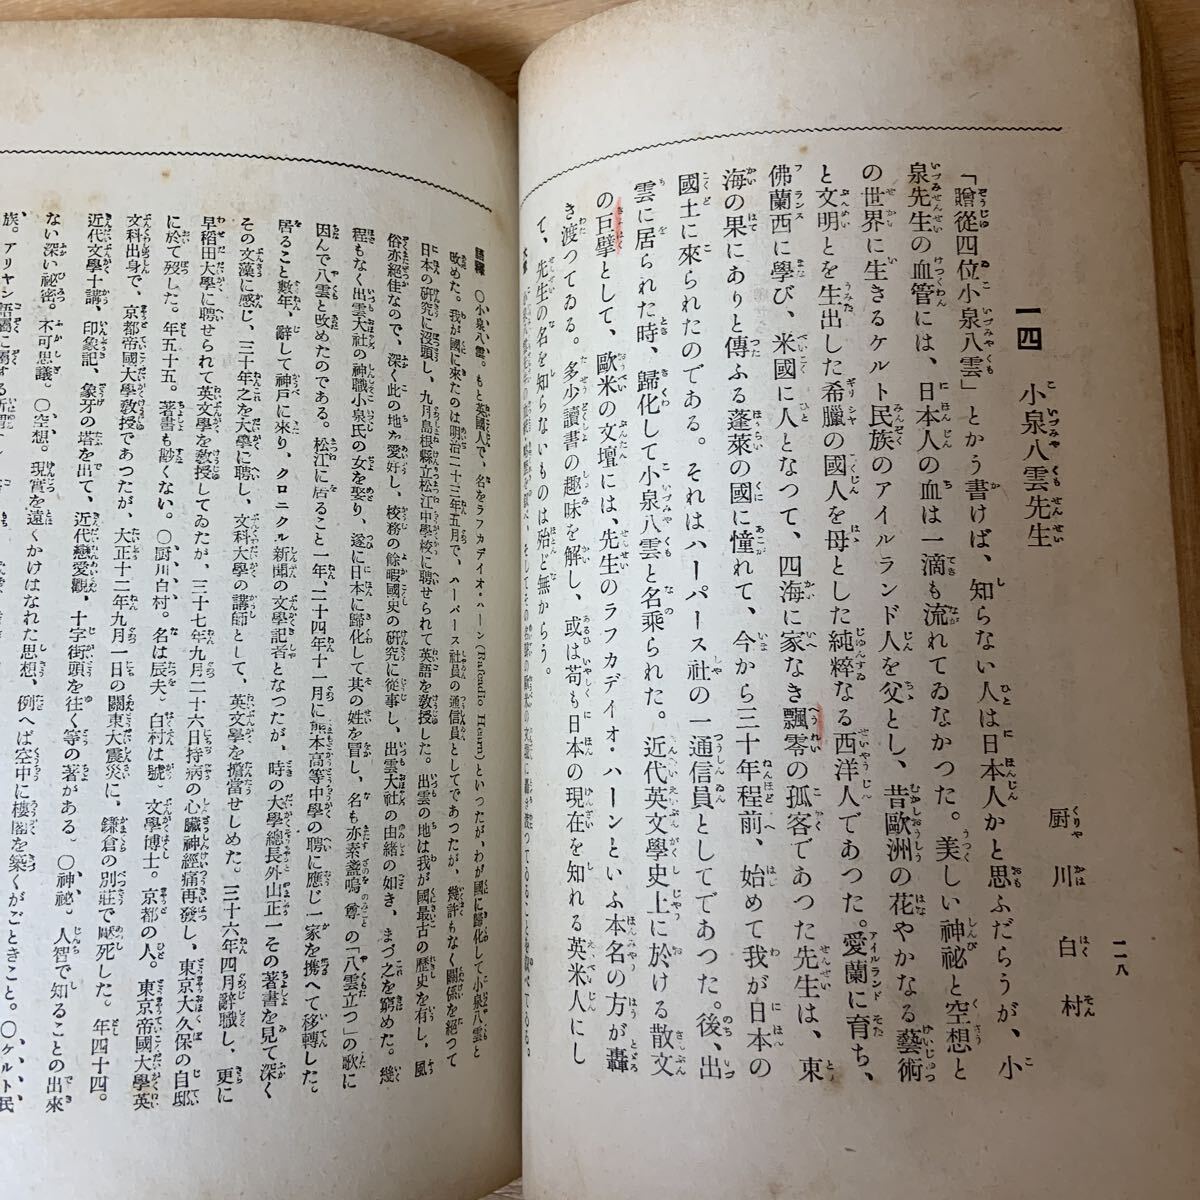 一二八
一四 小泉八雲先生
厨川白村
「贈從四位小泉八雲」とかう書けば、知らない人は日本人かと思ふだらうが、小
泉先生の血管には、日本人の血は一滴も流れてゐなかつた。美しい神祕と空想と
の世界に生きるケルト民族のアイルランド人を父とし、昔歐洲の花やかなる藝術
と文明とを生出した希臘の國人を母とした純粹なる西洋人であつた。愛蘭に育ち、
佛蘭西に學び、米國に人となつて、四海に家なき飄零の孤客であつた先生は、東
海の果にありと傳ふる蓬萊の國に憧れて、今から三十年程前、始めて我が日本の
國土に來られたのである。それはハーパース社の一通信員としてであつた。後、出
雲に居られた時、歸化して小泉八雲と名乘られた。近代英文學史上に於ける散文
の巨擘として、歐米の文壇には、先生のラフカデイオ・ハーンといふ本名の方が轟
き渡つてゐる。多少讀書の趣味を解し、或は苟も日本の現在を知れる英米人にし
て、先生の名を知らないものは殆ど無からう。
語釋 〇小泉八雲。もと英國人で、名をラフカデイオ・ハーン(Lafcadio Hearn)といつたが、わが國に歸化して小泉八雲と
改めた。我が國に來たのは明治二十三年五月で、ハーパース社員の通信員としてであつたが、幾許もなく關係を絕つて
日本の硏究に沒頭し、九月島根縣立松江中學校に聘せられて英語を敎授した。出雲の地は我が國最古の歷史を有し、風
俗亦絕佳なので、深く此の地を愛好し、校務の餘暇國史の硏究に從事し、出雲大社の由緖の如き、まづ之を窮めた。幾
程もなく出雲大社の神職小泉氏の女を娶り、遂に日本に歸化して其の姓を冒し、名も亦素盞嗚尊の「八雲立つ」の歌に
因んで八雲と改めたのである。松江に居ること一年、二十四年十一月に熊本高等中學の聘に應じ一家を携へて移轉した。
居ること數年、辭して神戶に來り、クロニクル新聞の文學記者となつたが、時の大學總長外山正一その著書を見て深く
その文藻に感じ、三十年之を大學に聘し、文科大學の講師として、英文學を擔當せしめた。三十六年四月辭職し、更に
早稻田大學に聘せられて英文學を敎授してゐたが、三十七年九月二十六日持病の心臟神經痛再發し、東京大久保の自邸
に於て歿した。年五十五。著書も尠くない。〇厨川白村。名は辰夫。白村は號。文學博士。京都の人。東京帝國大學英
文科出身で、京都帝國大學敎授であつたが、大正十二年九月一日の關東大震災に、鎌倉の別莊で壓死した。年四十四。
近代文學十講、印象記、象牙の塔を出て、近代戀愛觀、十字街頭を往く等の著がある。〇神祕。人智で知ることの出來
ない深い祕密。不可思議。〇空想。現實を遠くかけはなれた思想、例へば空中に樓閣を築くがごときこと。〇ケルト民
族。アリヤン語